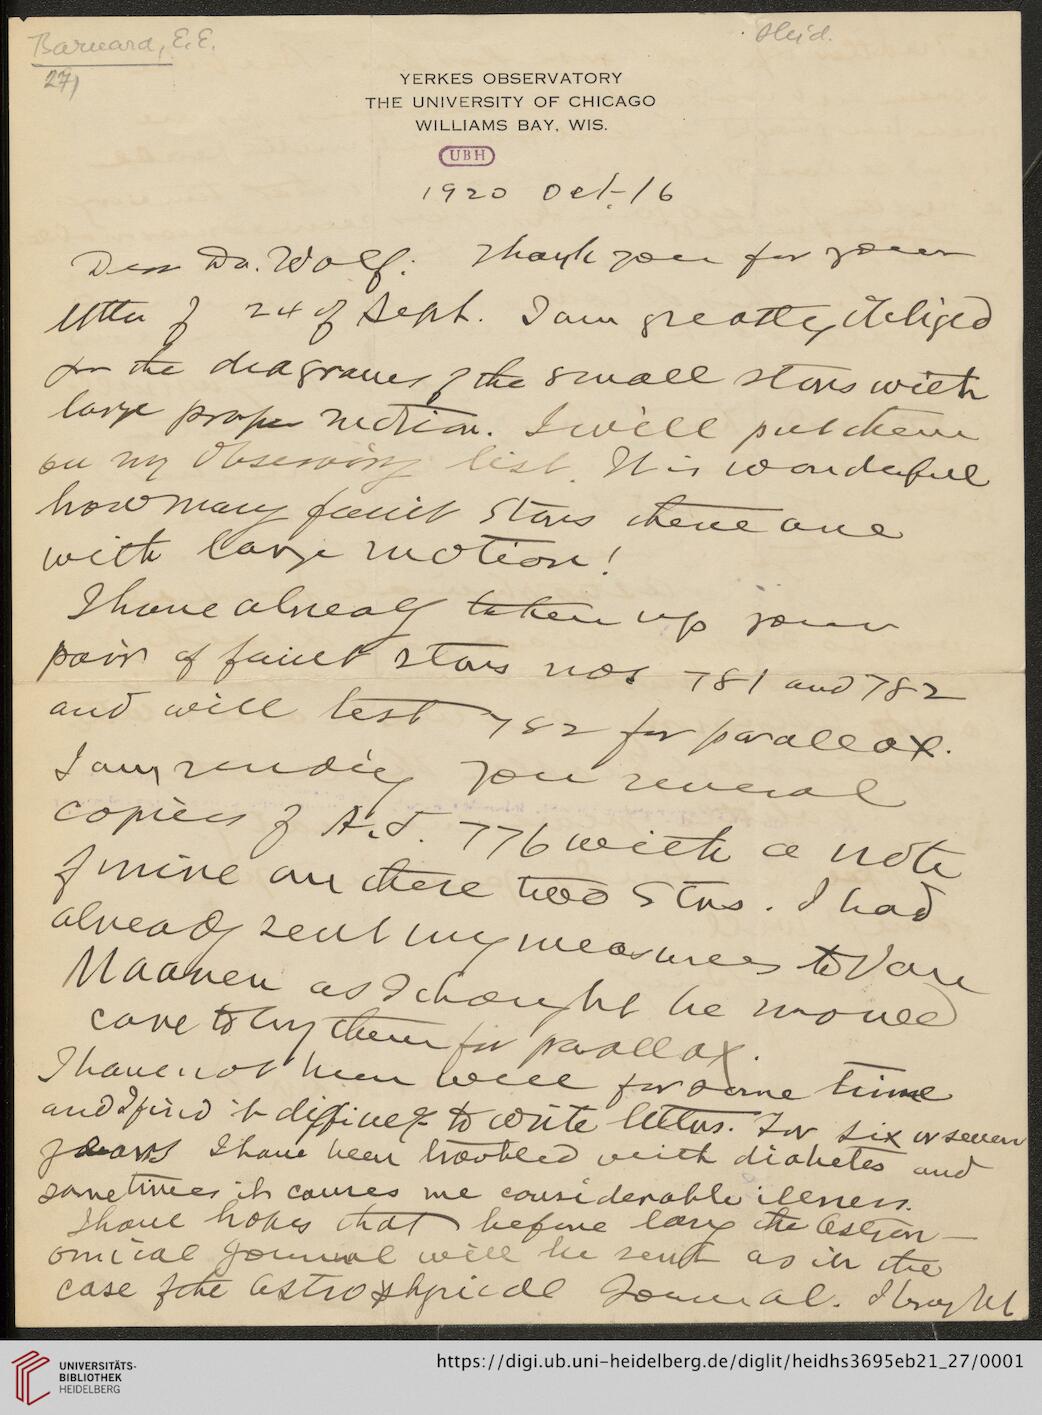 Barnard, E. E.
27)
Heid.
YERKES OBSERVATORY
THE UNIVERSITY OF CHICAGO
WILLIAMS BAY, WIS.
UBH
1920 Oct. 16
Dear Dr. Wolf: Thank you for your
letter of 24 of Sept. I am greatly obliged
for the diagrams of the small stars with
large proper motion. I will put them
on my observing list. It is wonderful
how many faint stars there are
with large motion!
I have already taken up your
pair of faint stars nos 781 and 782
and will test 782 for parallax.
I am sending you several
copies of A.J. 776 with a note
of mine on these two stars. I had
already sent my measures to Van
Maanen as I thought he would
care to try them for parallax.
I have not been well for some time
and I find it difficult to write letters. For six or seven
years I have been troubled with diabetes and
sometimes it causes me considerable illness.
I have hopes that before long the Astron-
omical Journal will be sent as in the
case of the Astrophysical Journal. I brought
UNIVERSITÄTS-
BIBLIOTHEK
HEIDELBERG
https://digi.ub.uni-heidelberg.de/diglit/heidhs3695eb21_27/0001